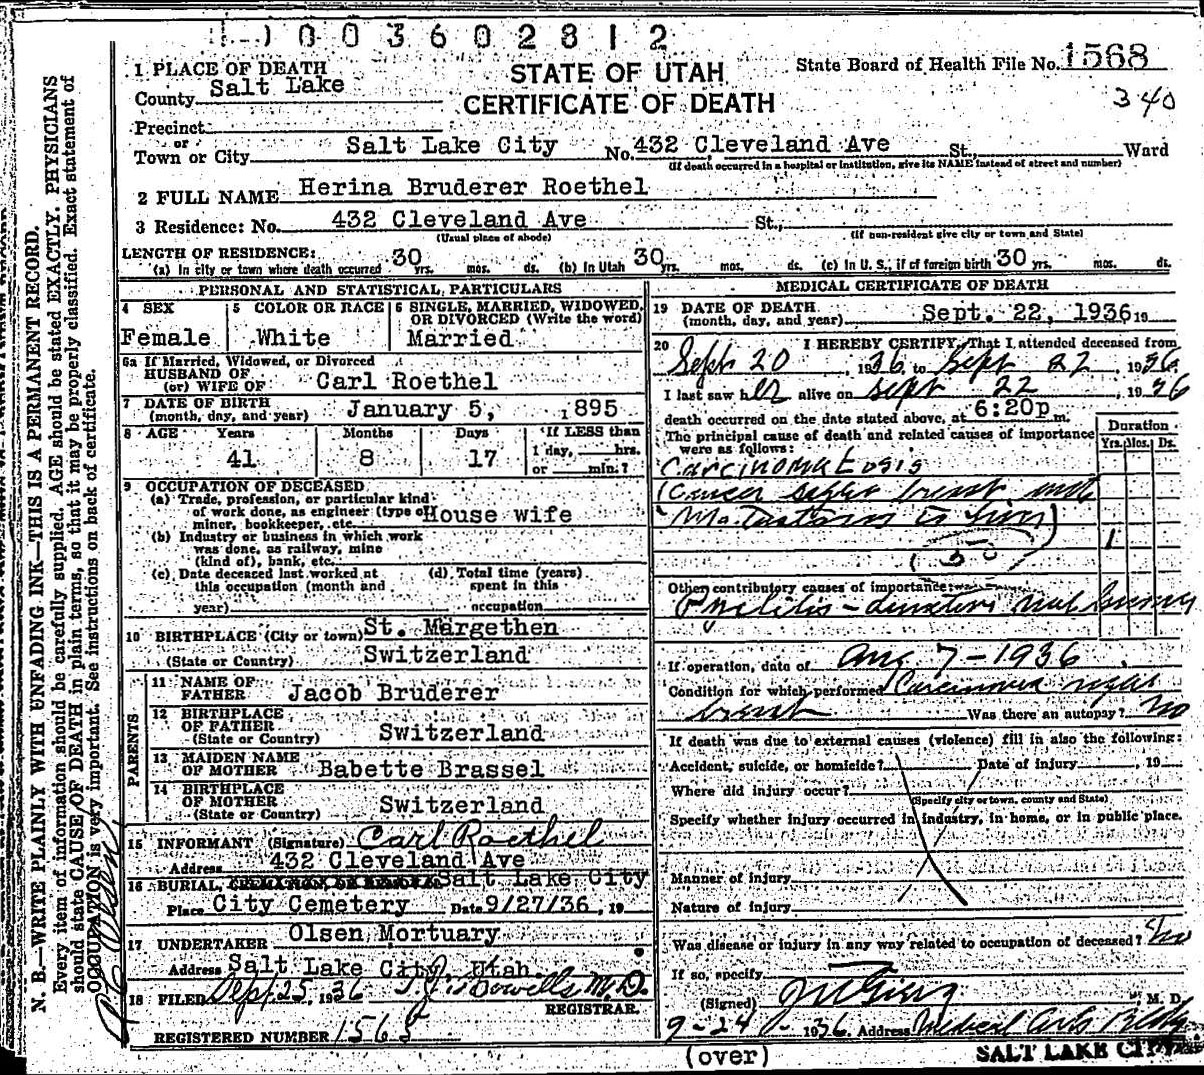 1003602812
1 PLACE OF DEATH
STATE OF UTAH
CERTIFICATE OF DEATH
State Board of Health File No. 1568
340
County Salt Lake
Precinct
or
Town or City Salt Lake City No. 432 Cleveland Ave St., Ward
(If death occurred in a hospital or institution, give its NAME instead of street and number)
2 FULL NAME Herina Bruderer Roethel
3 Residence: No. 432 Cleveland Ave St.,
(Usual place of abode) (If non-resident give city or town and State)
LENGTH OF RESIDENCE:
(a) In city or town where death occurred 30 yrs. mos. ds. (b) In Utah 30 yrs. mos. ds. (c) In U. S., if of foreign birth 30 yrs. mos. ds.
PERSONAL AND STATISTICAL PARTICULARS
4 SEX
Female
5 COLOR OR RACE
White
6 SINGLE, MARRIED, WIDOWED,
OR DIVORCED (Write the word)
Married
6a If Married, Widowed, or Divorced
HUSBAND OF
(or) WIFE OF Carl Roethel
7 DATE OF BIRTH
(month, day, and year) January 5, 1895
8 AGE Years Months Days If LESS than
41 8 17 1 day, hrs.
or min.?
9 OCCUPATION OF DECEASED
(a) Trade, profession, or particular kind
of work done, as engineer (type of
miner, bookkeeper, etc. House wife
(b) Industry or business in which work
was done, as railway, mine
(kind of), bank, etc.
(c) Date deceased last worked at
this occupation (month and
year)
(d) Total time (years)
spent in this
occupation
10 BIRTHPLACE (City or town) St. Margethen
(State or Country) Switzerland
PARENTS
11 NAME OF
FATHER Jacob Bruderer
12 BIRTHPLACE
OF FATHER
(State or Country) Switzerland
13 MAIDEN NAME
OF MOTHER Babette Brassel
14 BIRTHPLACE
OF MOTHER
(State or Country) Switzerland
15 INFORMANT (Signature) Carl Roethel
Address 432 Cleveland Ave
16 BURIAL, CREMATION OR REMOVAL Salt Lake City
Place City Cemetery Date 9/27/36, 19
17 UNDERTAKER Olsen Mortuary
Address Salt Lake City, Utah.
18 FILED Sept. 25, 1936 M.D.
REGISTRAR.
REGISTERED NUMBER 1565
MEDICAL CERTIFICATE OF DEATH
19 DATE OF DEATH
(month, day, and year) Sept. 22, 1936 19
20 I HEREBY CERTIFY, That I attended deceased from
Sept 20, 1936, to Sept 22, 1936
I last saw her alive on Sept 22, 1936
death occurred on the date stated above, at 6:20p m.
The principal cause of death and related causes of importance
were as follows:
Duration
Yrs. Mos. Ds.
Carcinomatosis
(Cancer breast with
to
(50)
1
Other contributory causes of importance:
Pyelitis
If operation, date of Aug 7-1936
Condition for which performed Carcinoma right
breast Was there an autopsy? No
If death was due to external causes (violence) fill in also the following:
Accident, suicide, or homicide? Date of injury , 19
Where did injury occur?
(Specify city or town, county and State)
Specify whether injury occurred in industry, in home, or in public place.
Manner of injury
Nature of injury
Was disease or injury in any way related to occupation of deceased? No
If so, specify
(Signed) M. D.
9-24-1936 Address Medical Arts Bldg
SALT LAKE CITY
(over)
N. B.—WRITE PLAINLY WITH UNFADING INK—THIS IS A PERMANENT RECORD.
Every item of information should be carefully supplied. AGE should be stated EXACTLY. PHYSICIANS
should state CAUSE OF DEATH in plain terms, so that it may be properly classified. Exact statement of
OCCUPATION is very important. See instructions on back of certificate.